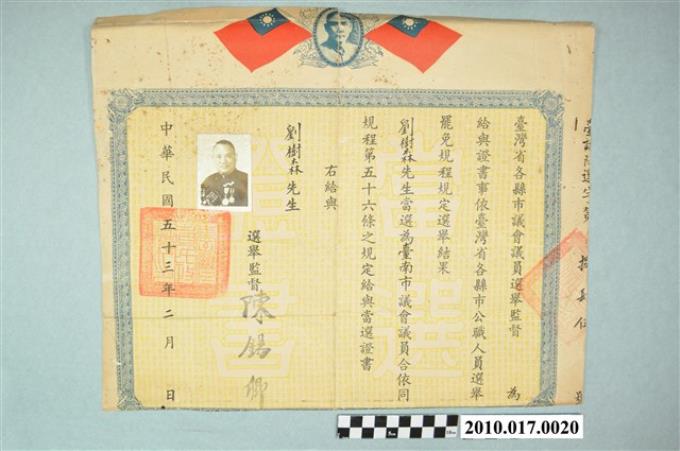 臺灣省各縣市議會議員選舉監督 為
給與證書事依臺灣省各縣市公職人員選舉
罷免規程規定選舉結果
劉樹森先生當選為臺南市議會議員合依同
規程第五十六條之規定給與當選證書
右給與
劉樹森先生
選舉監督 陳錫卿
中華民國五十三年二月 日
當選證書
2010.017.0020